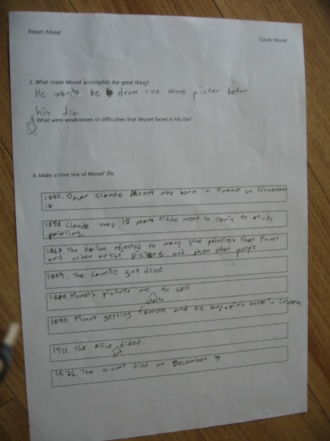 Smart Ahead
Claude Monet
2. What made Monet accomplish the great thing?
He he draw one more picter before
his die
3. What were weaknesses or difficulties that Monet faced in his life?
4. Make a time line of Monet' life.
1840. Oscar Claude Monet was born in on November
14
Claude was 18 years old he went to Paris to study
painting.
The rejected so many good paintings then Monet
and other artist and show other people
The Camille got died.
Monet's pictures to sell
1890. Monet getting famous and he buying house in Giverny
1911. The Alice dided.
1926. The monet died on December 5